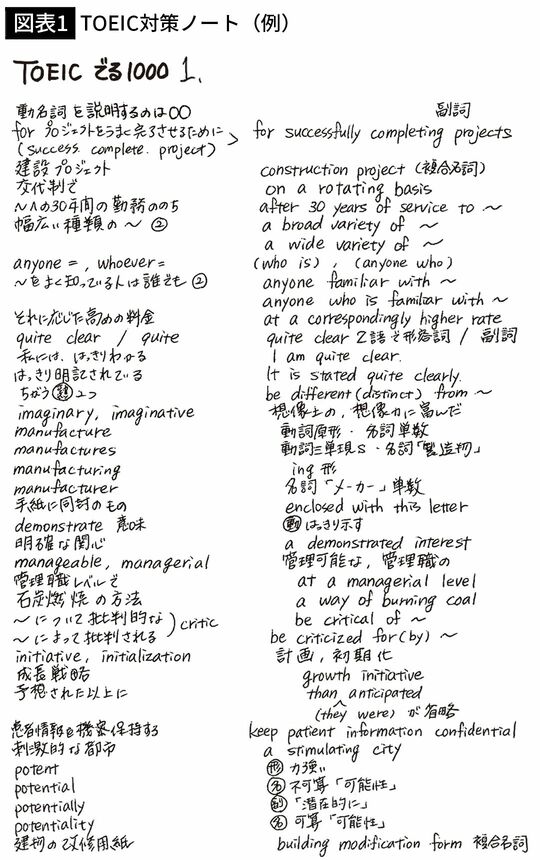 図表1 TOEIC対策ノート（例）
TOEIC でる1000 1.
動名詞を説明するのは○○ 副詞
for プロジェクトをうまく完了させるために > for successfully completing projects
(success. complete. project)
建設プロジェクト construction project (複合名詞)
交代制で on a rotating basis
〜への30年間の勤務ののち after 30 years of service to 〜
幅広い種類の〜 ② a broad variety of 〜
a wide variety of 〜
anyone = , whoever = (who is) , (anyone who)
〜をよく知っている人は誰でも ② anyone familiar with 〜
anyone who is familiar with 〜
それに応じた高めの料金 at a correspondingly higher rate
quite clear / quite quite clear 2語で形容詞 / 副詞
私には、はっきりわかる I am quite clear.
はっきり明記されている It is stated quite clearly.
ちがう 2つ be different (distinct) from 〜
imaginary, imaginative 想像上の, 想像力に富んだ
manufacture 動詞原形・名詞単数
manufactures 動詞三単現s・名詞「製造物」
manufacturing ing形
manufacturer 名詞「メーカー」単数
手紙に同封のもの enclosed with this letter
demonstrate 意味 動 はっきり示す
明確な関心 a demonstrated interest
manageable, managerial 管理可能な, 管理職の
管理職レベルで at a managerial level
石炭燃焼の方法 a way of burning coal
〜について批判的な ) critic be critical of 〜
〜によって批判される be criticized for (by) 〜
initiative, initialization 計画, 初期化
成長戦略 growth initiative
予想された以上に than anticipated
(they were) が省略
患者情報を機密保持する keep patient information confidential
刺激的な都市 a stimulating city
potent 形 力強い
potential 名 不可算「可能性」
potentially 副 「潜在的に」
potentiality 名 可算「可能性」
建物の改修用紙 building modification form 複合名詞